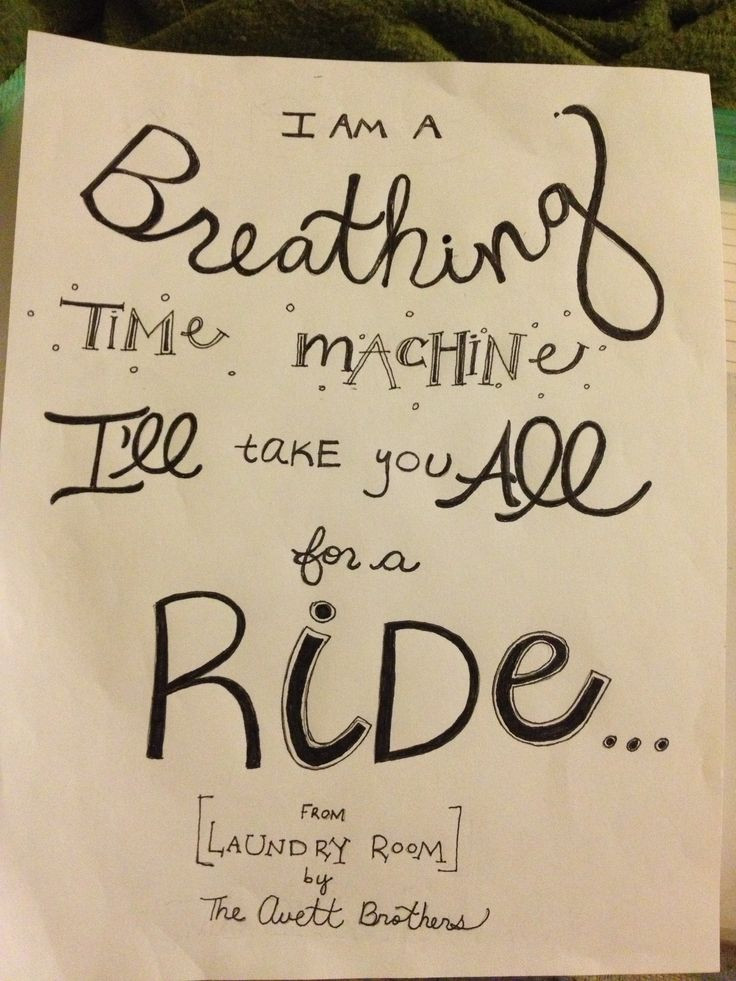 I AM A
Breathing
TIME MACHINE
I'll take you All
for a
RiDe...
FROM
[LAUNDRY ROOM]
by
The Avett Brothers